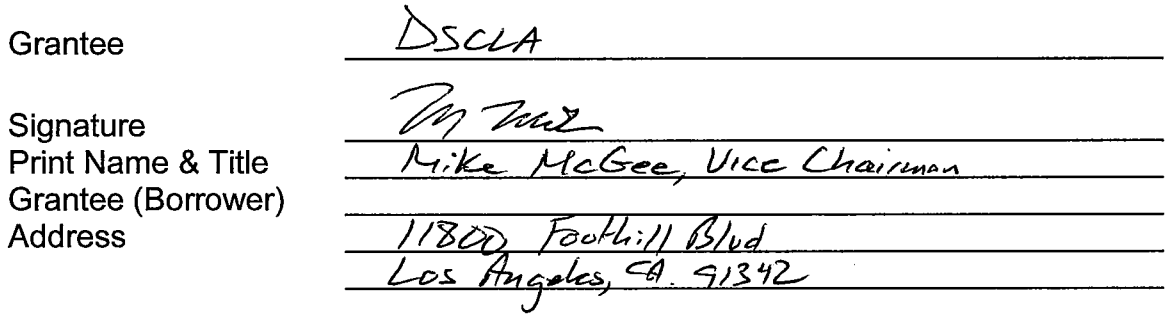 Grantee DSCLA
Signature
Print Name & Title Mike McGee, Vice Chairman
Grantee (Borrower)
Address 11800 Foothill Blvd
Los Angeles, CA. 91342